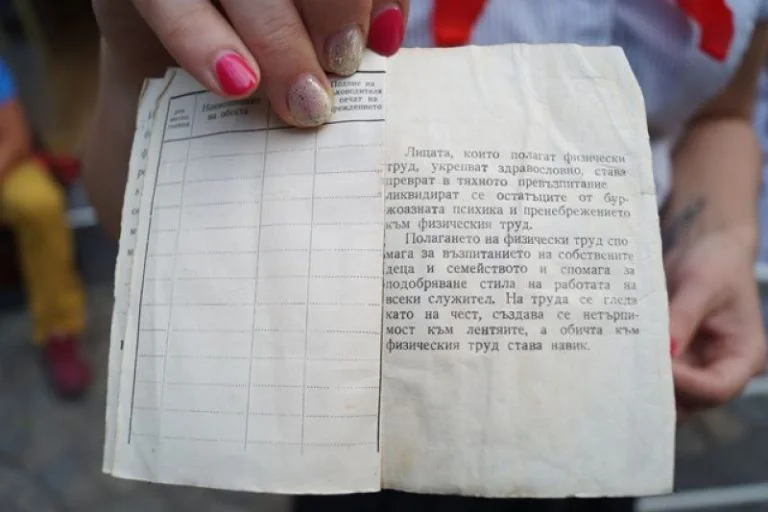 Наименование
на обекта
Подпис на
печат на
Лицата, които полагат физически
труд, укрепват здравословно, става
преврат в тяхното превъзпитание
ликвидират се остатъците от бур-
жоазната психика и пренебрежението
към физическия труд.
Полагането на физически труд спо-
мага за възпитанието на собствените
деца и семейството и спомага за
подобряване стила на работата на
всеки служител. На труда се гледа
като на чест, създава се нетърпи-
мост към лентяите, а обичта към
физическия труд става навик.